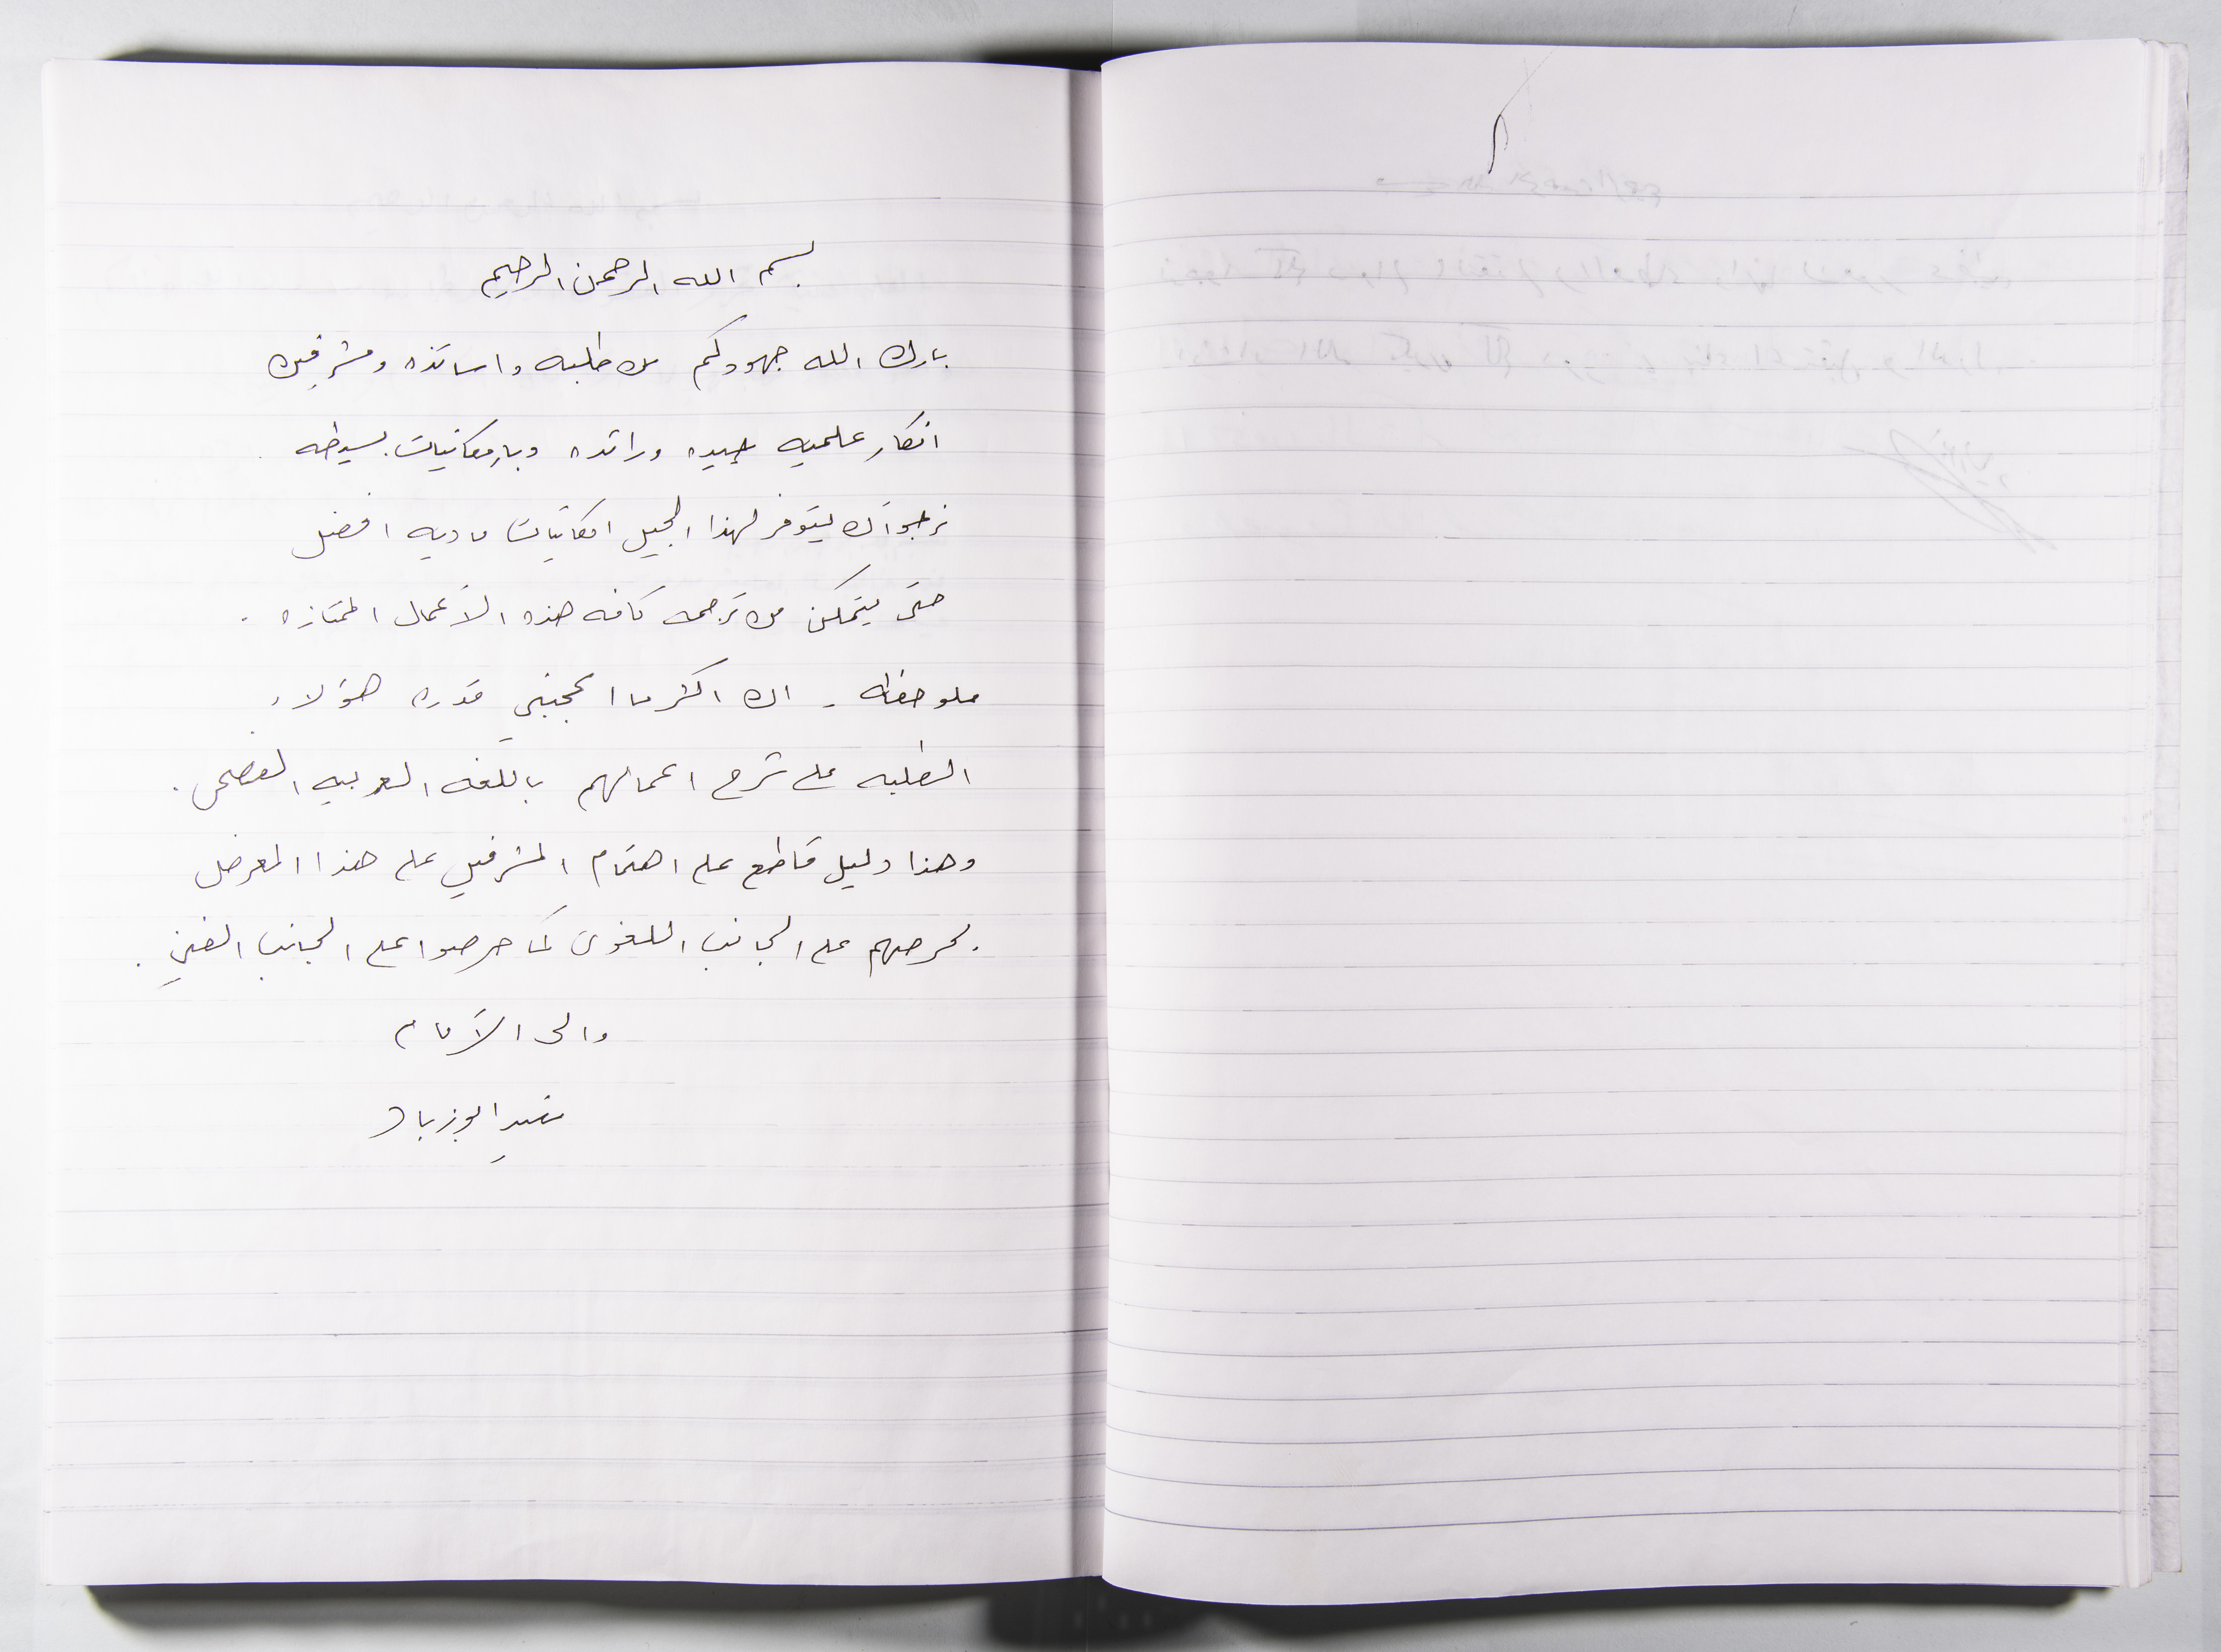 بسم الله الرحمن الرحيم
بارك الله جهودكم من طلبه واساتذه ومشرفين
افكار علميه جيده ورائده وبإمكانيات بسيطه
نرجو أن يتوفر لهذا الجيل امكانيات ماديه افضل
حتى يتمكن من ترجمه كافه هذه الأعمال الممتازه .
ملوحظه - ان اكثر ما اعجبني قدره هؤلاء
الطلبه على شرح اعمالهم باللغه العربيه الفصحى .
وهذا دليل قاطع على اهتمام المشرفين على هذا المعرض
لحرصهم على الجانب اللغوى كما حرصوا على الجانب الفني .
والى الأمام
مفيد ابو زياد